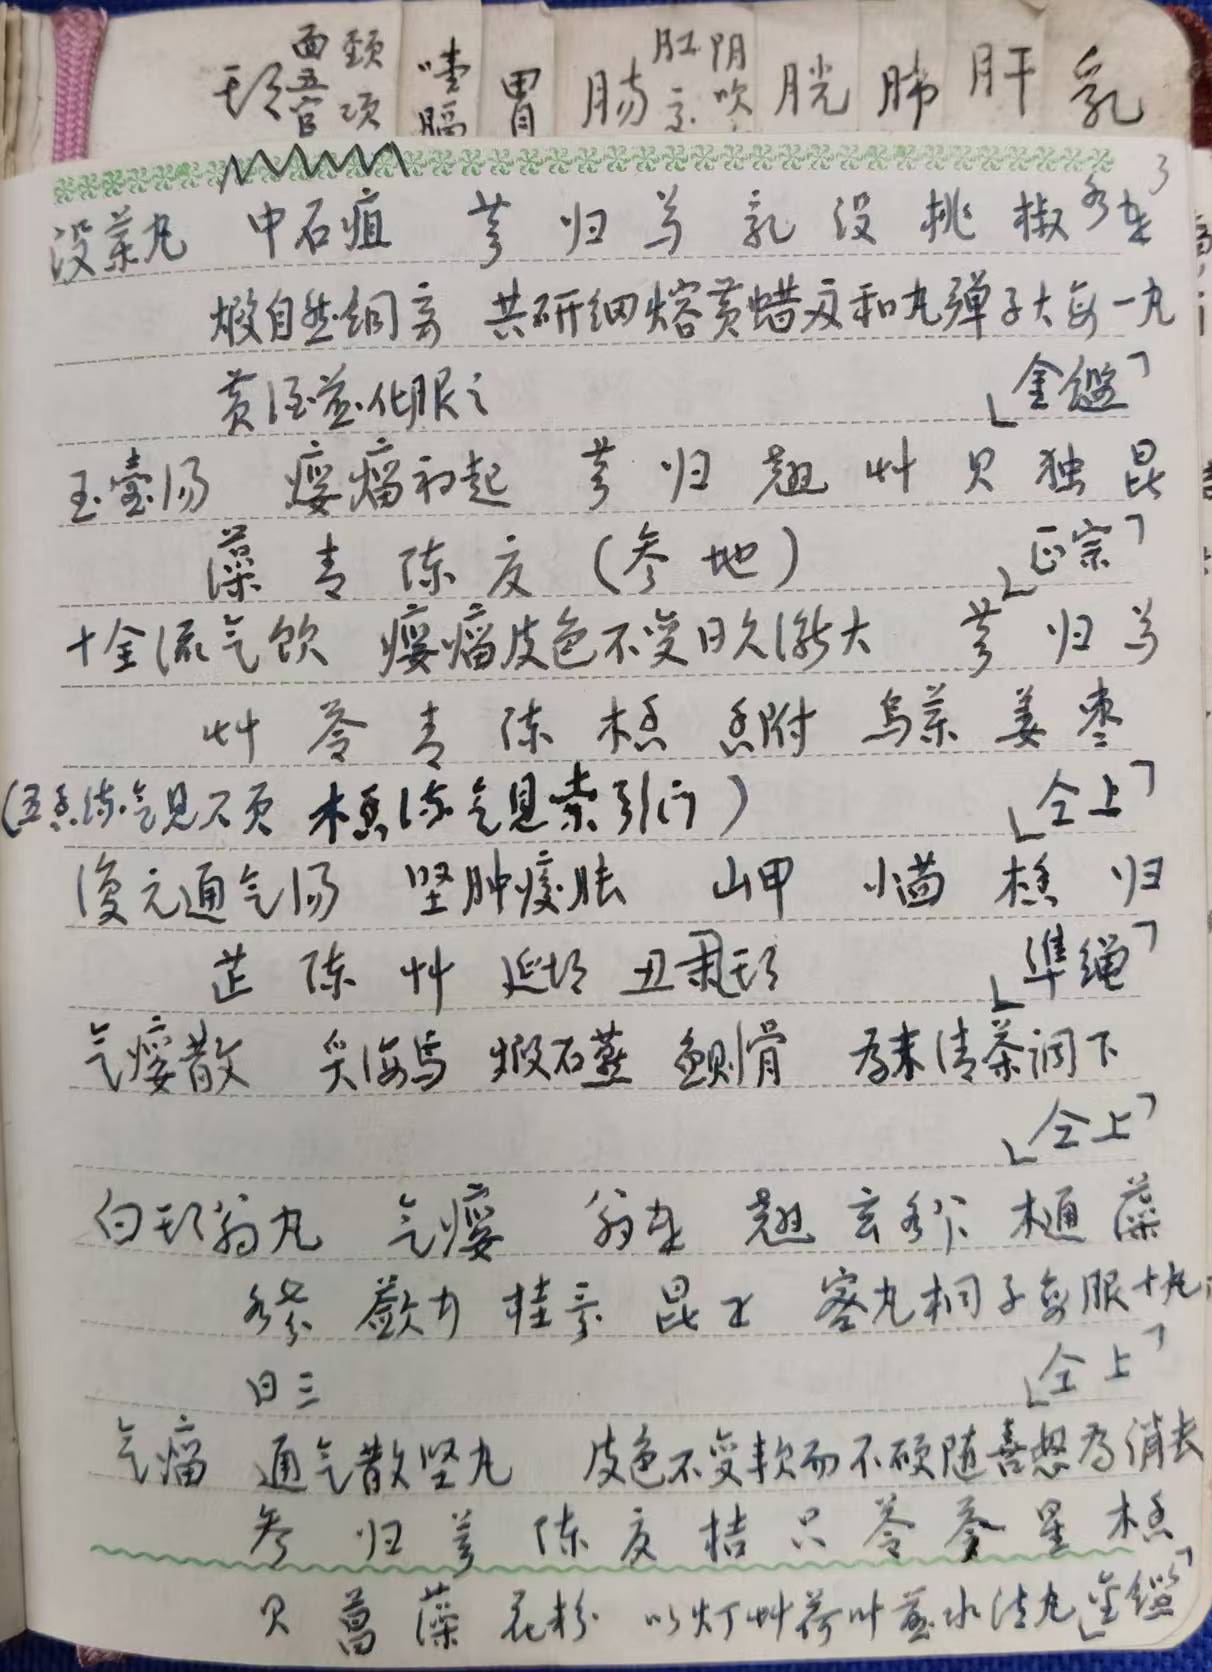 头 面五官 颈项 噎膈 胃 肠 肛 阴吹 胱 肺 肝 乳
3
没药丸 中石疽 芎 归 芍 乳 没 桃 椒
煅自然铜 共研细熔黄蜡 和丸弹子大每一丸
黄酒 化服之 「金鑑」
玉壶汤 瘿瘤初起 芎 归 翘 艸 贝 独 昆
藻 青 陈 夏 (参 地) 「正宗」
十全流气饮 瘿瘤皮色不变日久渐大 芎 归 芍
艸 苓 青 陈 木香 香附 乌药 姜 枣
(五香流气见下页 木香流气见索引 ) 「仝上」
復元通气汤 坚肿痠胀 山甲 小茴 木香 归
芷 陈 艸 延胡 丑 头 「準绳」
气瘿散 海马 煅石燕 鲗骨 为末清茶调下
「仝上」
白头翁丸 气瘿 翁 翘 玄参 木通 藻
桂 昆 蜜丸桐子每服十丸
日三 「仝上」
气瘤 通气散坚丸 皮色不变软而不硕随喜怒为消长
参 归 芎 陈 夏 桔 只 苓 星 木香
贝 菖 藻 花粉 以灯艸荷叶 水法丸「金鑑」